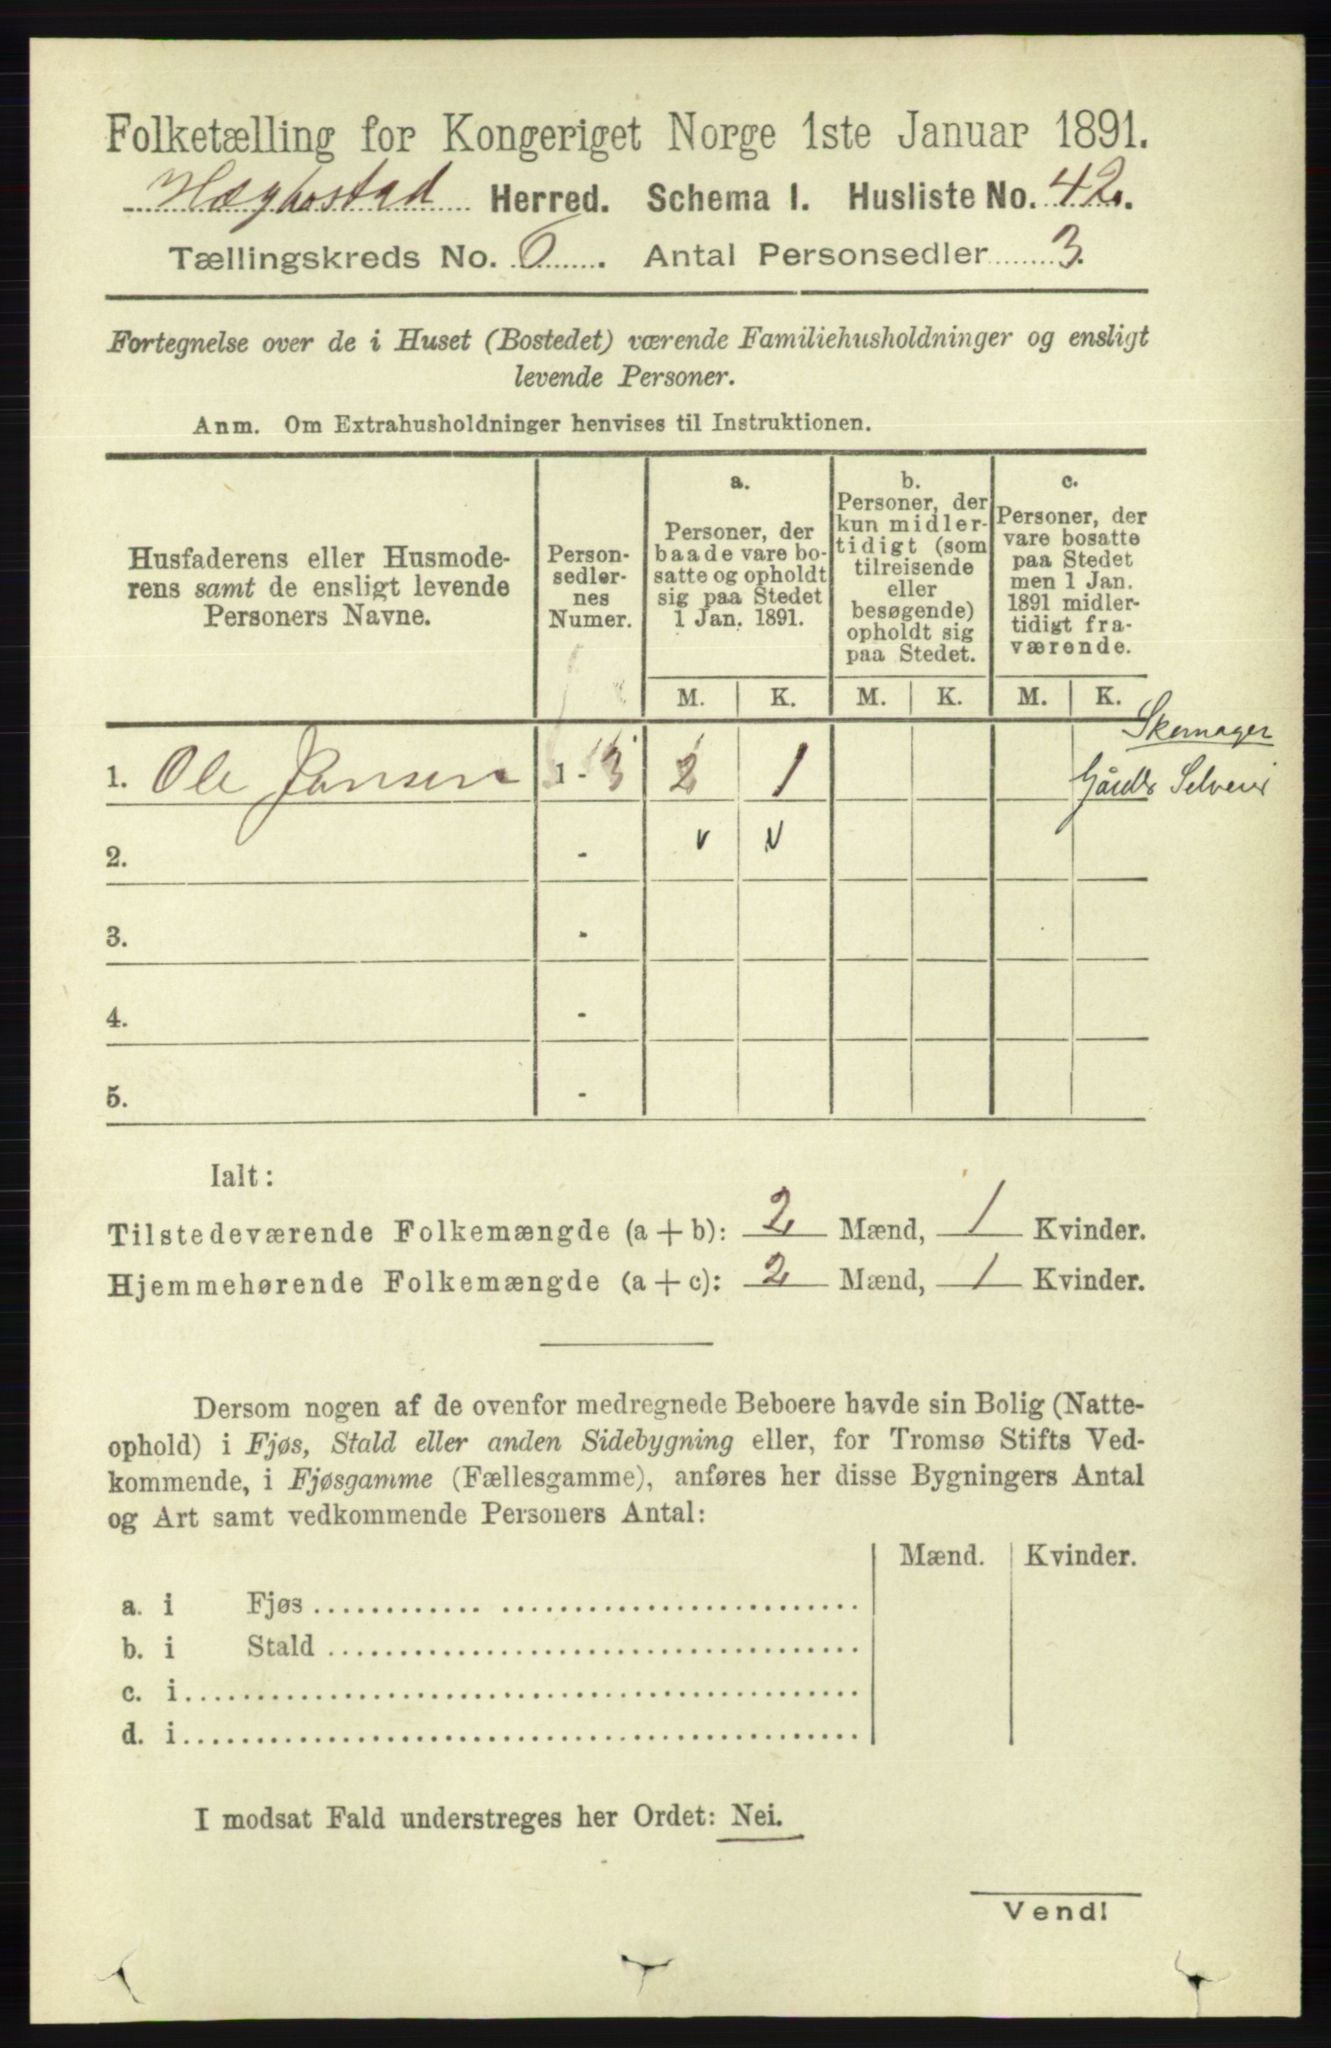 Folketælling for Kongeriget Norge 1ste Januar 1891.
Hægbostad Herred. Schema I. Husliste No. 42.
Tællingskreds No. 6. Antal Personsedler 3.
Fortegnelse over de i Huset (Bostedet) værende Familiehusholdninger og ensligt
levende Personer.
Anm. Om Extrahusholdninger henvises til Instruktionen.
Husfaderens eller Husmode-
rens samt de ensligt levende
Personers Navne.
Person-
sedler-
nes
Numer.
a.
Personer, der
baade vare bo-
satte og opholdt
sig paa Stedet
1 Jan. 1891.
b.
Personer, der
kun midler-
tidigt (som
tilreisende
eller
besøgende)
opholdt sig
paa Stedet.
c.
Personer, der
vare bosatte
paa Stedet
men 1 Jan.
1891 midler-
tidigt fra-
værende.
M. K. M. K. M. K.
Skomager
1. Ole Jansen 1 - 3 2 1 Gårdbr Selveier
2. - v v
3. -
4. -
5. -
Ialt:
Tilstedeværende Folkemængde (a + b): 2 Mænd, 1 Kvinder.
Hjemmehørende Folkemængde (a + c): 2 Mænd, 1 Kvinder.
Dersom nogen af de ovenfor medregnede Beboere havde sin Bolig (Natte-
ophold) i Fjøs, Stald eller anden Sidebygning eller, for Tromsø Stifts Ved-
kommende, i Fjøsgamme (Fællesgamme), anføres her disse Bygningers Antal
og Art samt vedkommende Personers Antal:
Mænd. Kvinder.
a. i Fjøs
b. i Stald
c. i
d. i
I modsat Fald understreges her Ordet: Nei.
Vend!